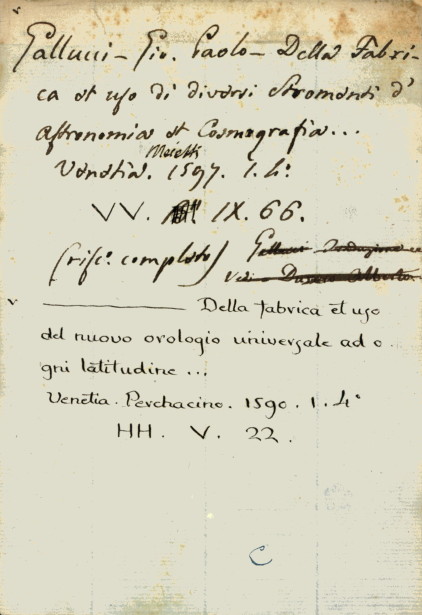 Gallucci - Gio. Paolo - Della Fabri-
ca et uso di diversi Stromenti d'
Astronomia et Cosmografia...
Meietti
Venetia. 1597. 1. 4º
VV. IX. 66.
(risc.º completo) Gallucci
Della fabrica et uso
del nuovo orologio universale ad o
gni latitudine ...
Venetia. Perchacino. 1590. 1. 4º
HH. V. 22.
C